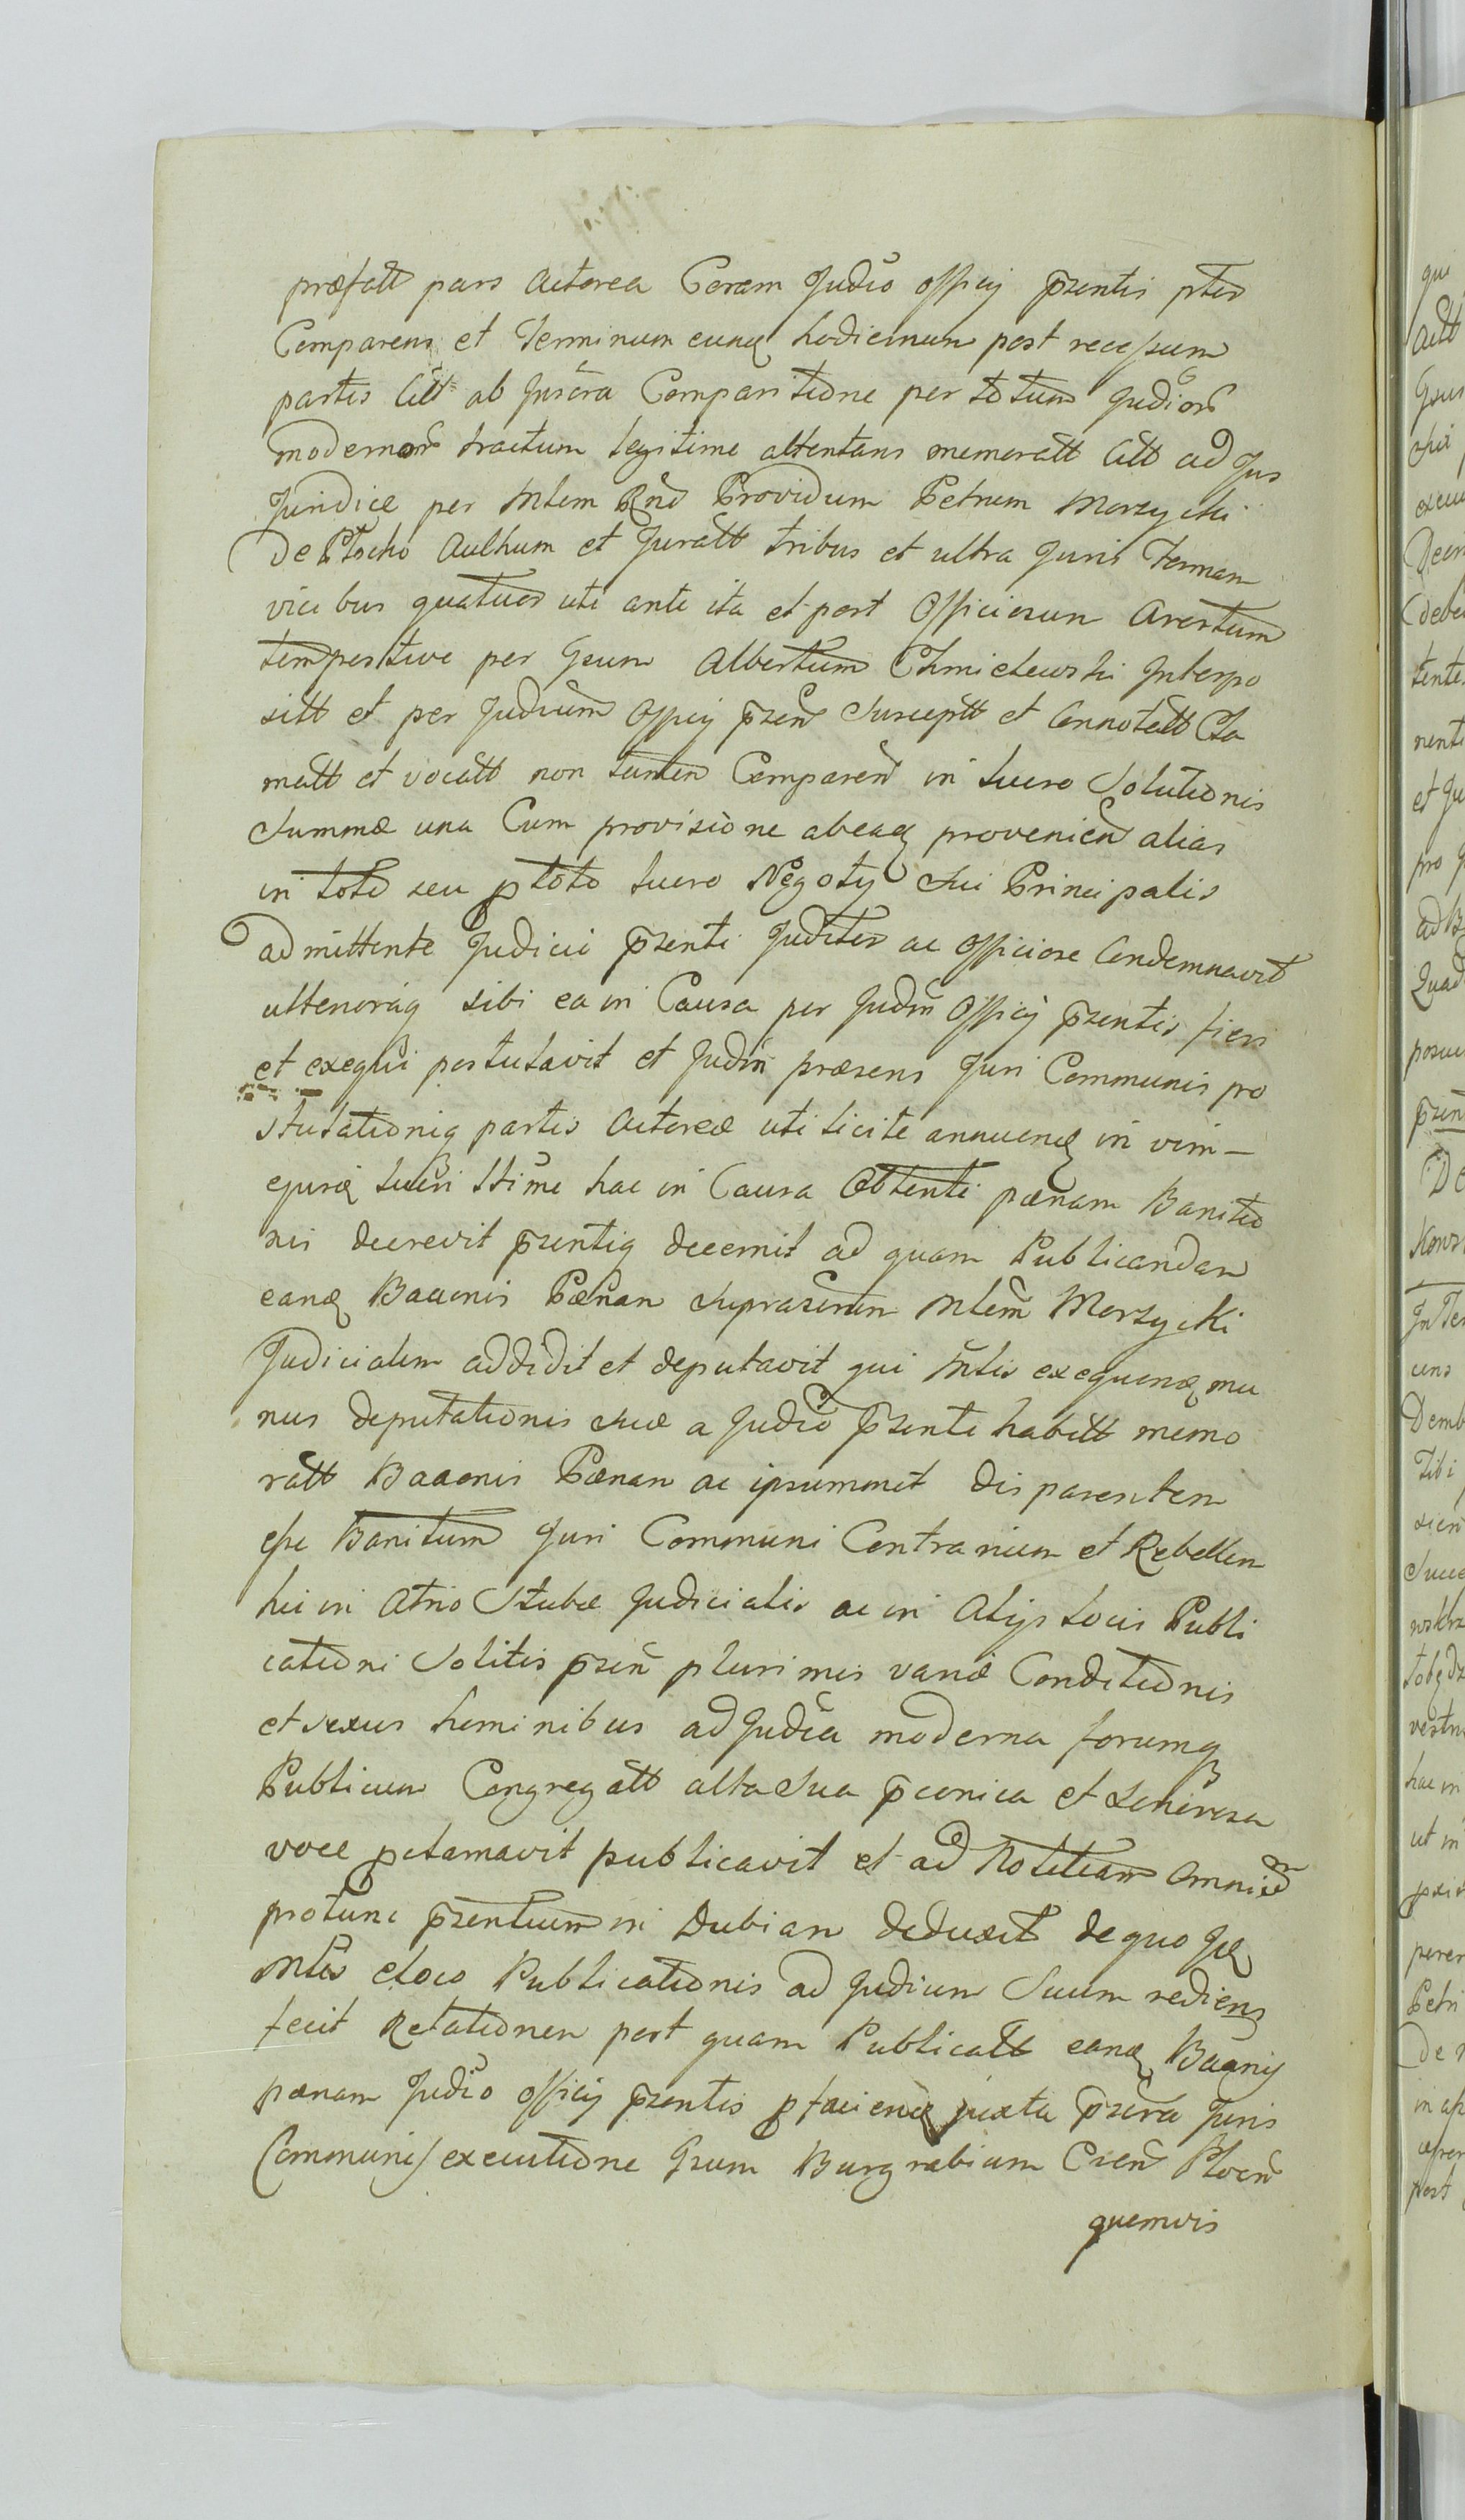 præfatt pars Actorea Coram Judio Officij pzentis pter
Comparens et Terminum eunq hodiernum post recessum
partis Citt ab Juscra Comparitione per totum Judior
modernor tractum legitime attentans memoratt Citt ad Jus
Juridice per Mlem Rnd Providum Petrum Morzycki
De Plocko Authum et Juratt tribus et ultra Juris Terman
vicibus quatuor uti ante ita et post Officiosum Arestum
tempestive per Gsum Albertum Chmielewski Interpo
sitt et per Judicium Officij pzen Susceptt et Connotatt Cla
matt et vocatt non tamen Comparen in lucro Solutionis
Summæ una Cum provisione abeaq provenien alias
in toto seu ptoto lucro Negotij Sui Principalis
admittente Judicii pzenti Juditer ac Officiose Condemnavit
ulterioraq sibi ea in Causa per Judm Officij pzentis fieri
et exequi postulavit et Judm præsens Juri Communis pro
stulationiq partis Actoreæ uti licite annuenq in vim –
ejusq lucri ltime hac in Causa Obtenti pænam Banitio
nis decrevit pzentiq decernit ad quam Publicandam
eanq Baaonis Pænam Suprascrin Mlem Morzycki
Judicialem addidit et deputavit qui Mlis exequenq mu
nus deputationis suæ a Judio pzenti habitt memo
ratt Baaonis Pænam ac ipsummet disparentem
esse Banitum Juri Communi Contrarium et Rebellem
hic in Atrio Stubæ Judicialis ac in Alijs locis Publi
cationi Solitis pzen plurimis variæ Conditionis
et sexus hominibus ad Judia moderna forumq
Publicum Congregatt alta sua pconica et Sonorosa
voce pclamavit publicavit et ad Notitiam Omnium
protunc pzentium in Dubiam deduxit de quo Jq
Mlis eloco Publicationis ad Judium Suum rediens
fecit Relationem post quam Publicatt eanq Baanis
pænam Judio Officij pzentis pfacienq juxta pscra Juris
Communis executione Gsum Burgrabium Csen Plocen
quemvis